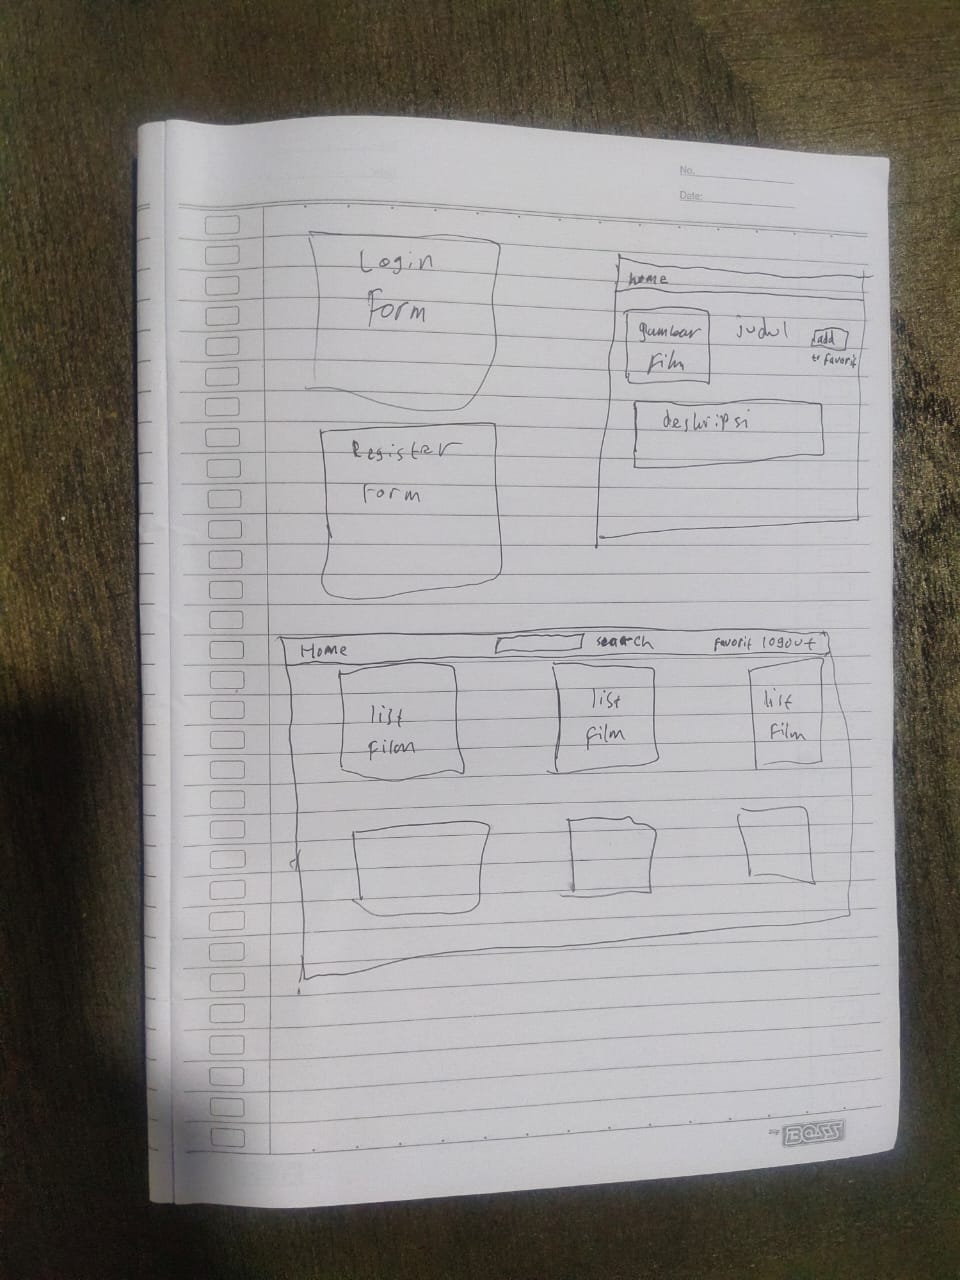 No.
Date:
Login
Form
Register
Form
home
gambar
Film
judul
add
to favorit
deskripsi
Home
search
favorit logout
list
Film
list
Film
list
Film
BOSS